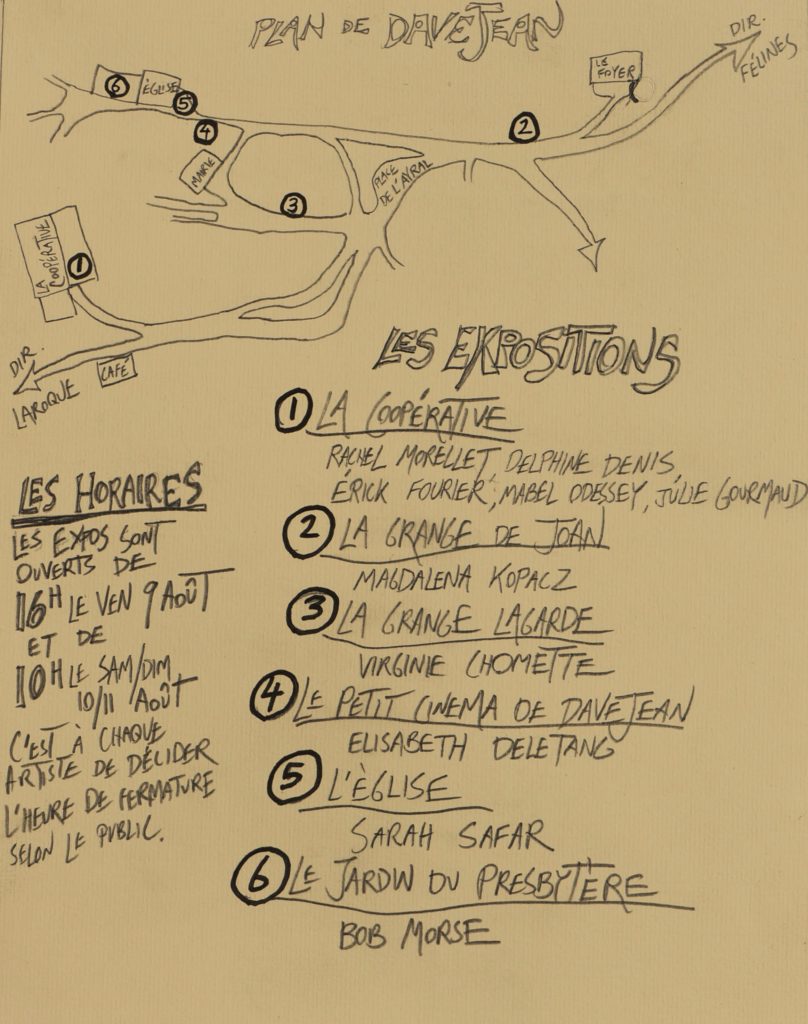 PLAN DE DAVEJEAN
DIR.
FÉLINES
LE
FOYER
6
ÈGLISE
5
4
2
MAIRIE
PLACE
DE L'AYRAL
3
LA
COOPÉRATIVE
1
DIR.
LAROQUE
CAFÉ
LES EXPOSITIONS
1 LA COOPÉRATIVE
RACHEL MORELLET, DELPHINE DENIS,
ÉRICK FOURIER, MABEL ODESSEY, JÚLIE GOURMAUD
2 LA GRANGE DE JOAN
MAGDALENA KOPACZ
3 LA GRANGE LAGARDE
VIRGINIE CHOMETTE
4 LE PETIT CINEMA DE DAVEJEAN
ELISABETH DELETANG
5 L'ÈGLISE
SARAH SAFAR
6 LE JARDIN DU PRESBYTÈRE
BOB MORSE
LES HORAIRES
LES EXPOS SONT
OUVERTS DE
16H LE VEN 9 AOÛT
ET DE
10H LE SAM/DIM
10/11 AOÛT
C'EST À CHAQUE
ARTISTE DE DÉCIDER
L'HEURE DE FERMATURE
SELON LE PUBLIC.